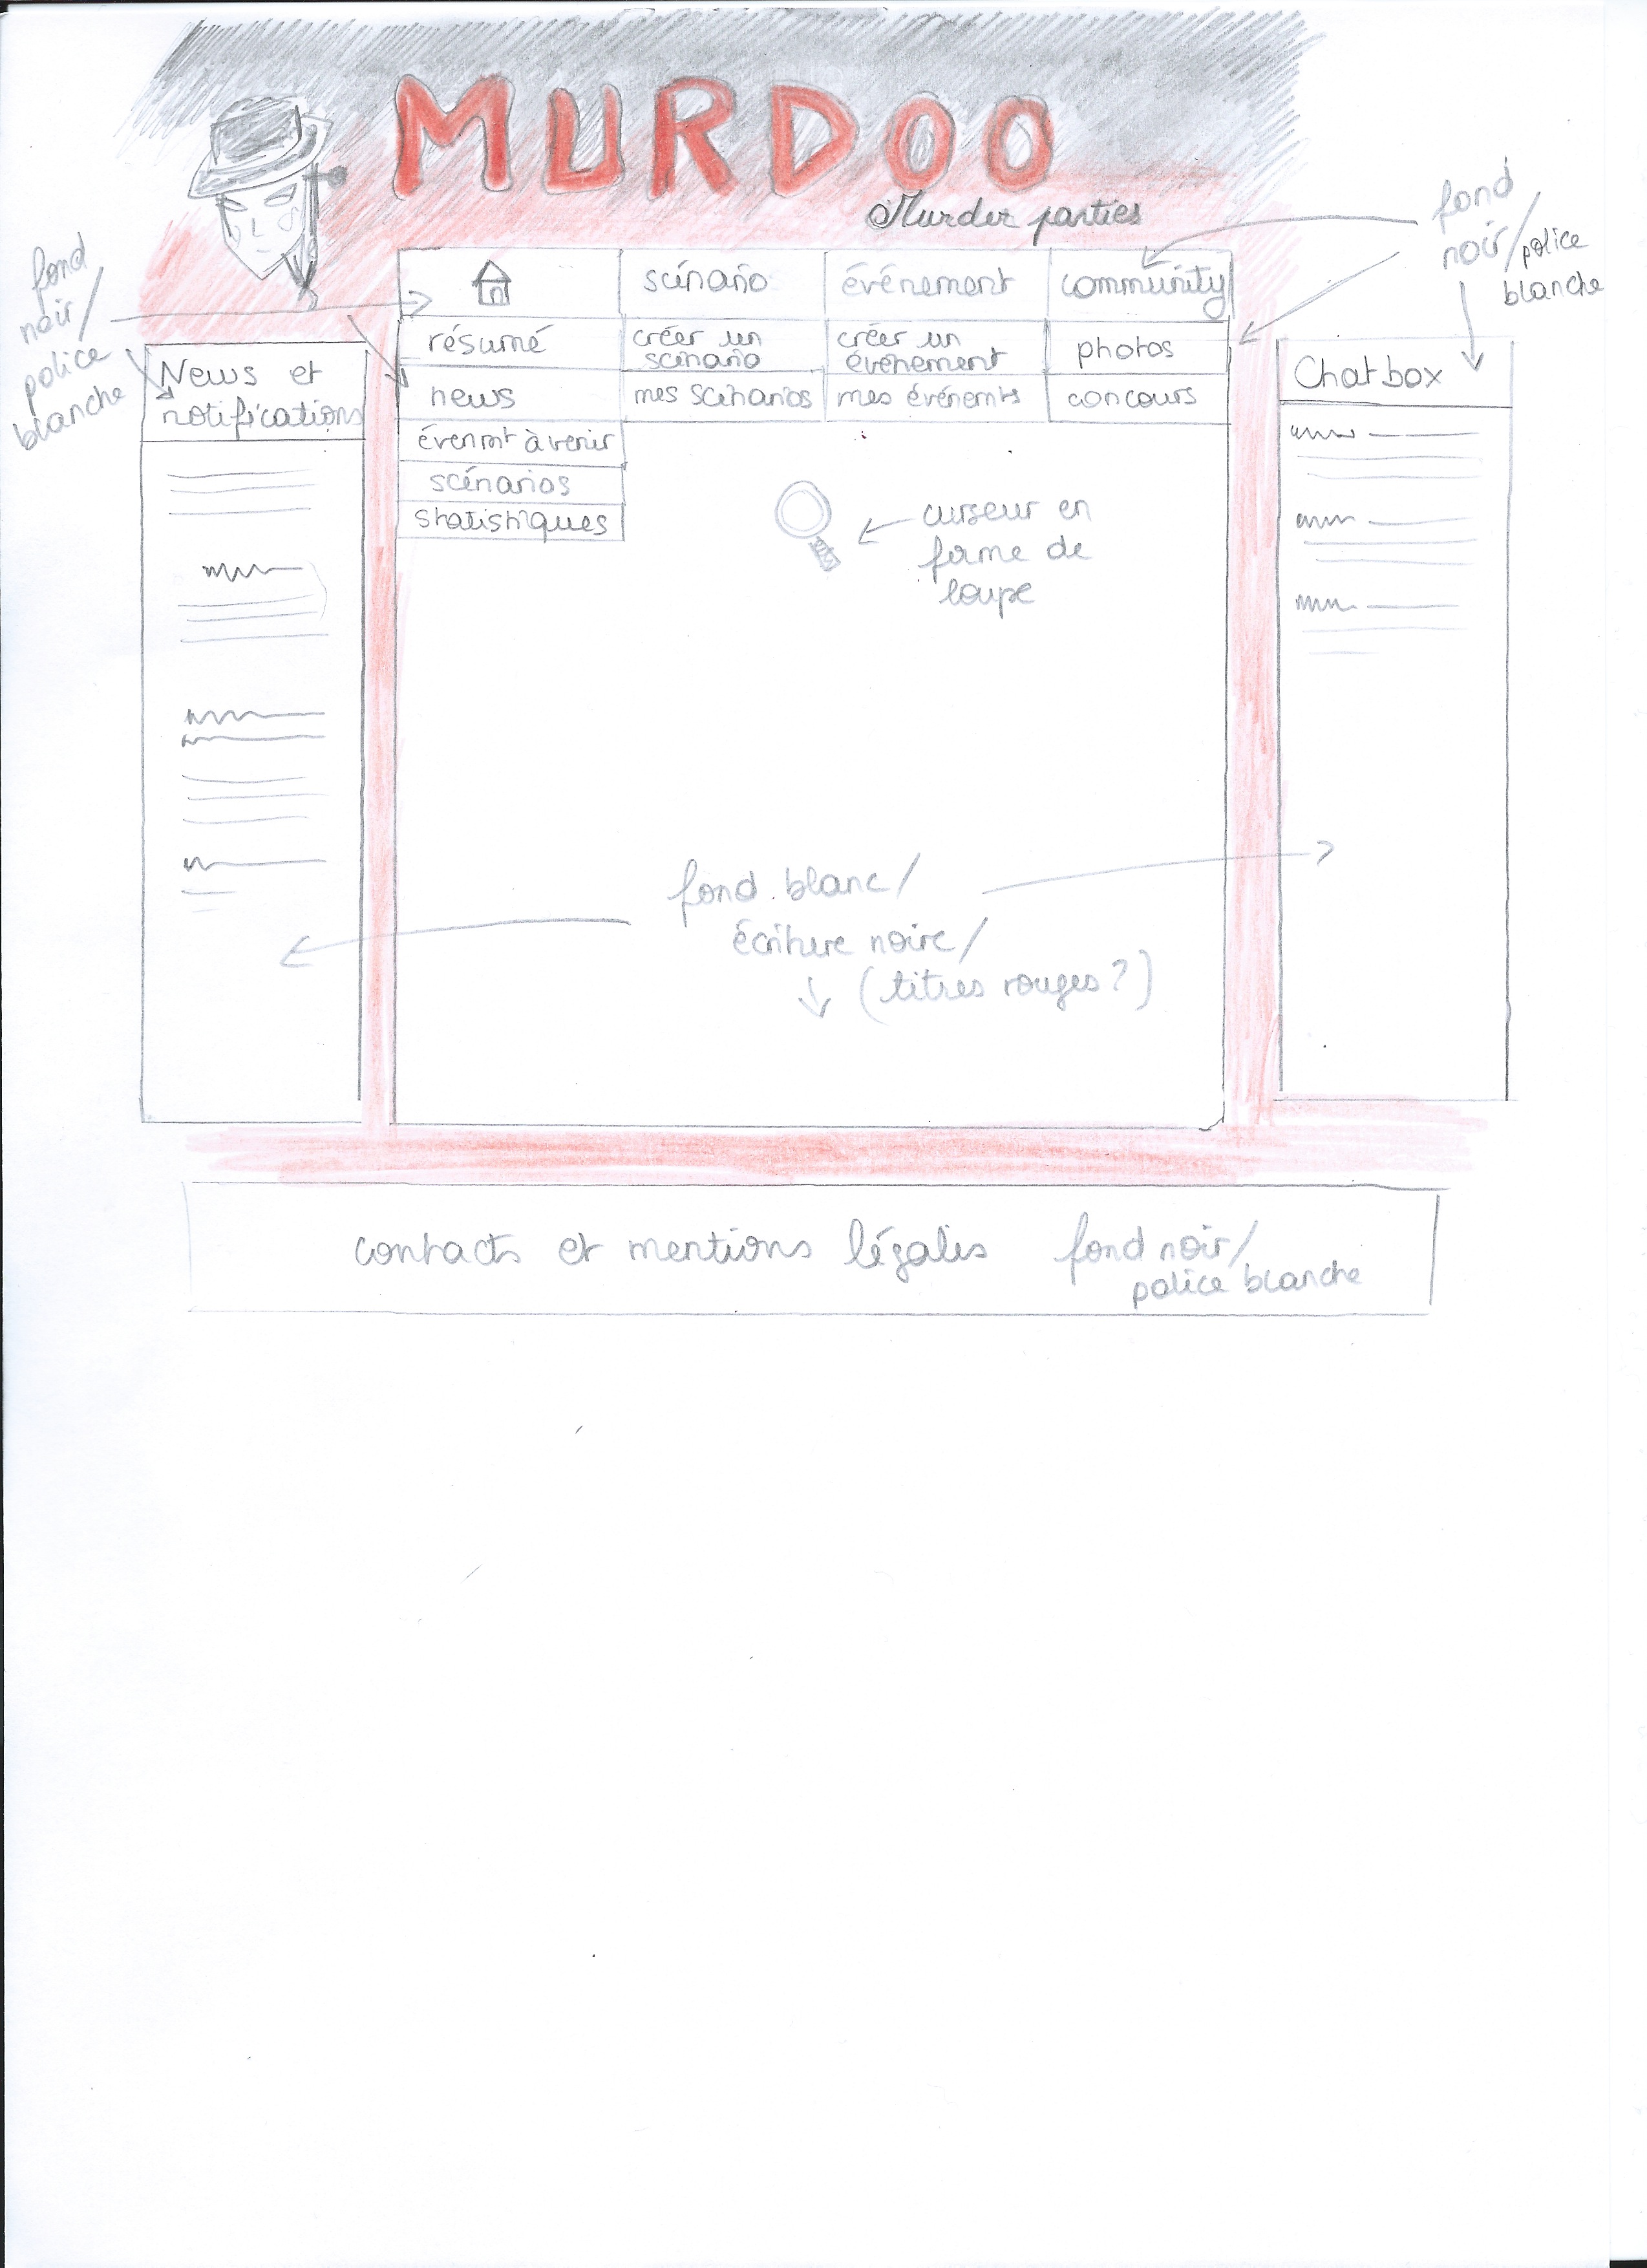 MURDOO
Murder parties
fond
noir/
police
blanche
fond
noir/police
blanche
scénario
événement
community
résumé
créer un
scénario
créer un
événement
photos
news
mes scénarios
mes événemts
concours
évenmt à venir
scénarios
statistiques
News et
notifications
Chatbox
curseur en
forme de
loupe
fond blanc/
écriture noire/
(titres rouges?)
contacts et mentions légales
fond noir/
police blanche